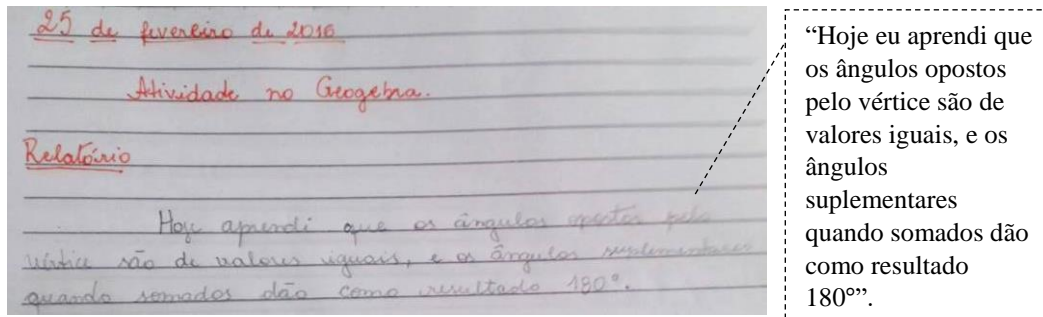 25 de fevereiro de 2016
Atividade no Geogebra.
Relatório
Hoje aprendi que os ângulos opostos pelo
vértice são de valores iguais, e os ângulos suplementares
quando somados dão como resultado 180°.
“Hoje eu aprendi que
os ângulos opostos
pelo vértice são de
valores iguais, e os
ângulos
suplementares
quando somados dão
como resultado
180°”.